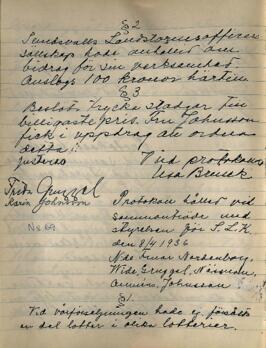 § 2
Sundsvalls Landstormsofficers
sällskap hade anhållit om
bidrag för sin verksamhet
Anslogs 100 kronor härtill
§ 3
Beslöt trycka stadgar till
billigaste pris. Fru Johnsson
fick i uppdrag att ordna
detta.
Justeras
Vid protokollet
Frida
Karin Johnsson
No 69
Protokoll hållet vid
sammanträde med
styrelsen för S.L.K.
den 8/4 1936
Wide, Gryzel, Neuman,
Johnsson
§ 1.
Vid varförsäljningen hade ej försålts
en del lotter i olika lotterier.